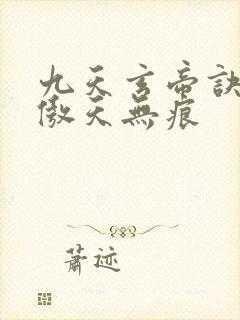 九天玄帝訣
傲天無痕
蕭迹